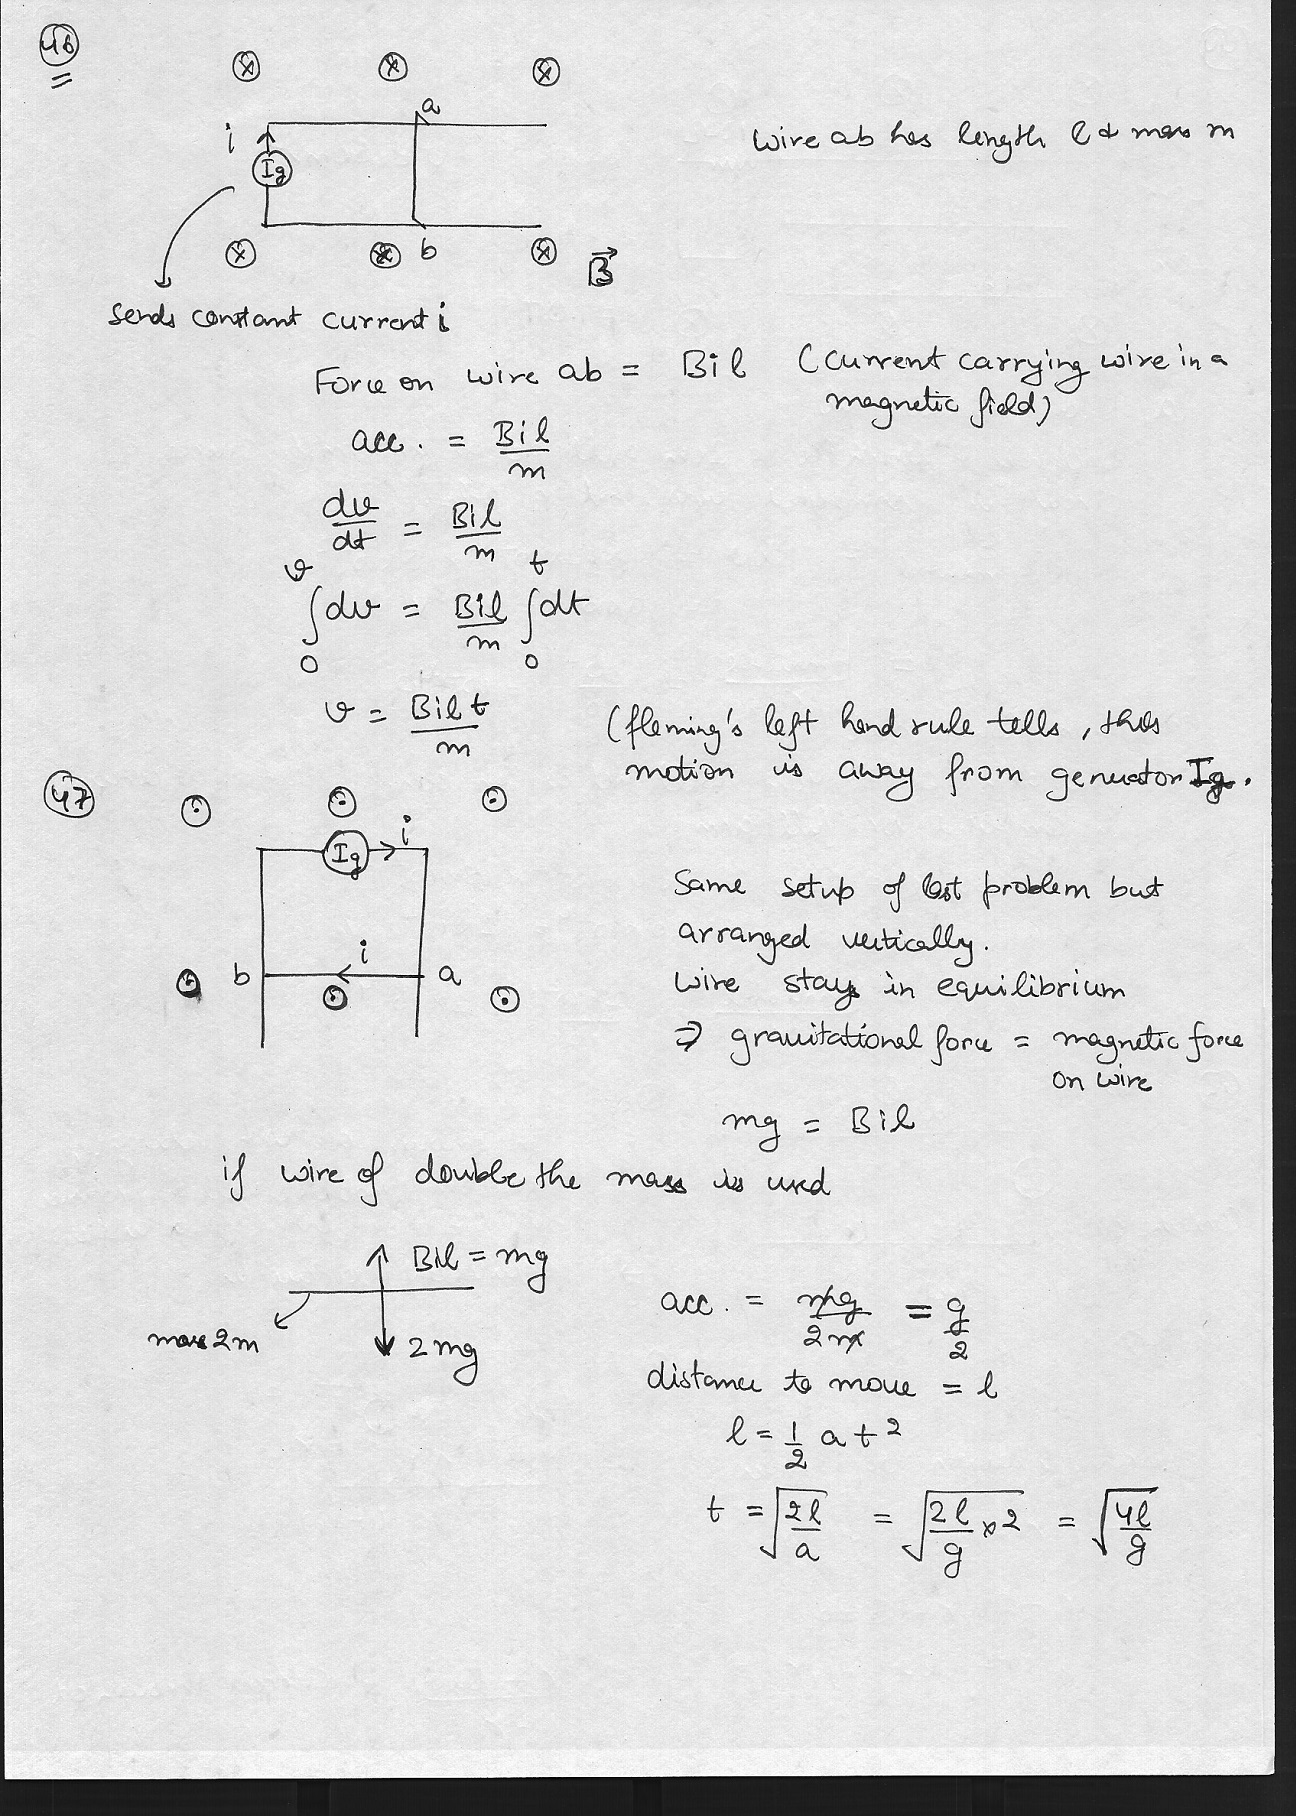 46
a
i
Ig
wire ab has length l & mass m
b
B
Sends constant current i
Force on wire ab = Bil (current carrying wire in a
magnetic field)
acc. = Bil/m
dv/dt = Bil/m
∫₀ᵛ dv = Bil/m ∫₀ᵗ dt
v = Bilt/m
(fleming's left hand rule tells, this
motion is away from generator Ig.
47
Ig i
Same setup of last problem but
arranged vertically.
b i a
wire stays in equilibrium
⇒ gravitational force = magnetic force
on wire
mg = Bil
if wire of double the mass is used
Bil = mg
mass 2m
2mg
acc. = mg/2m = g/2
distance to move = l
l = 1/2 at²
t = √(2l/a) = √(2l/g × 2) = √(4l/g)